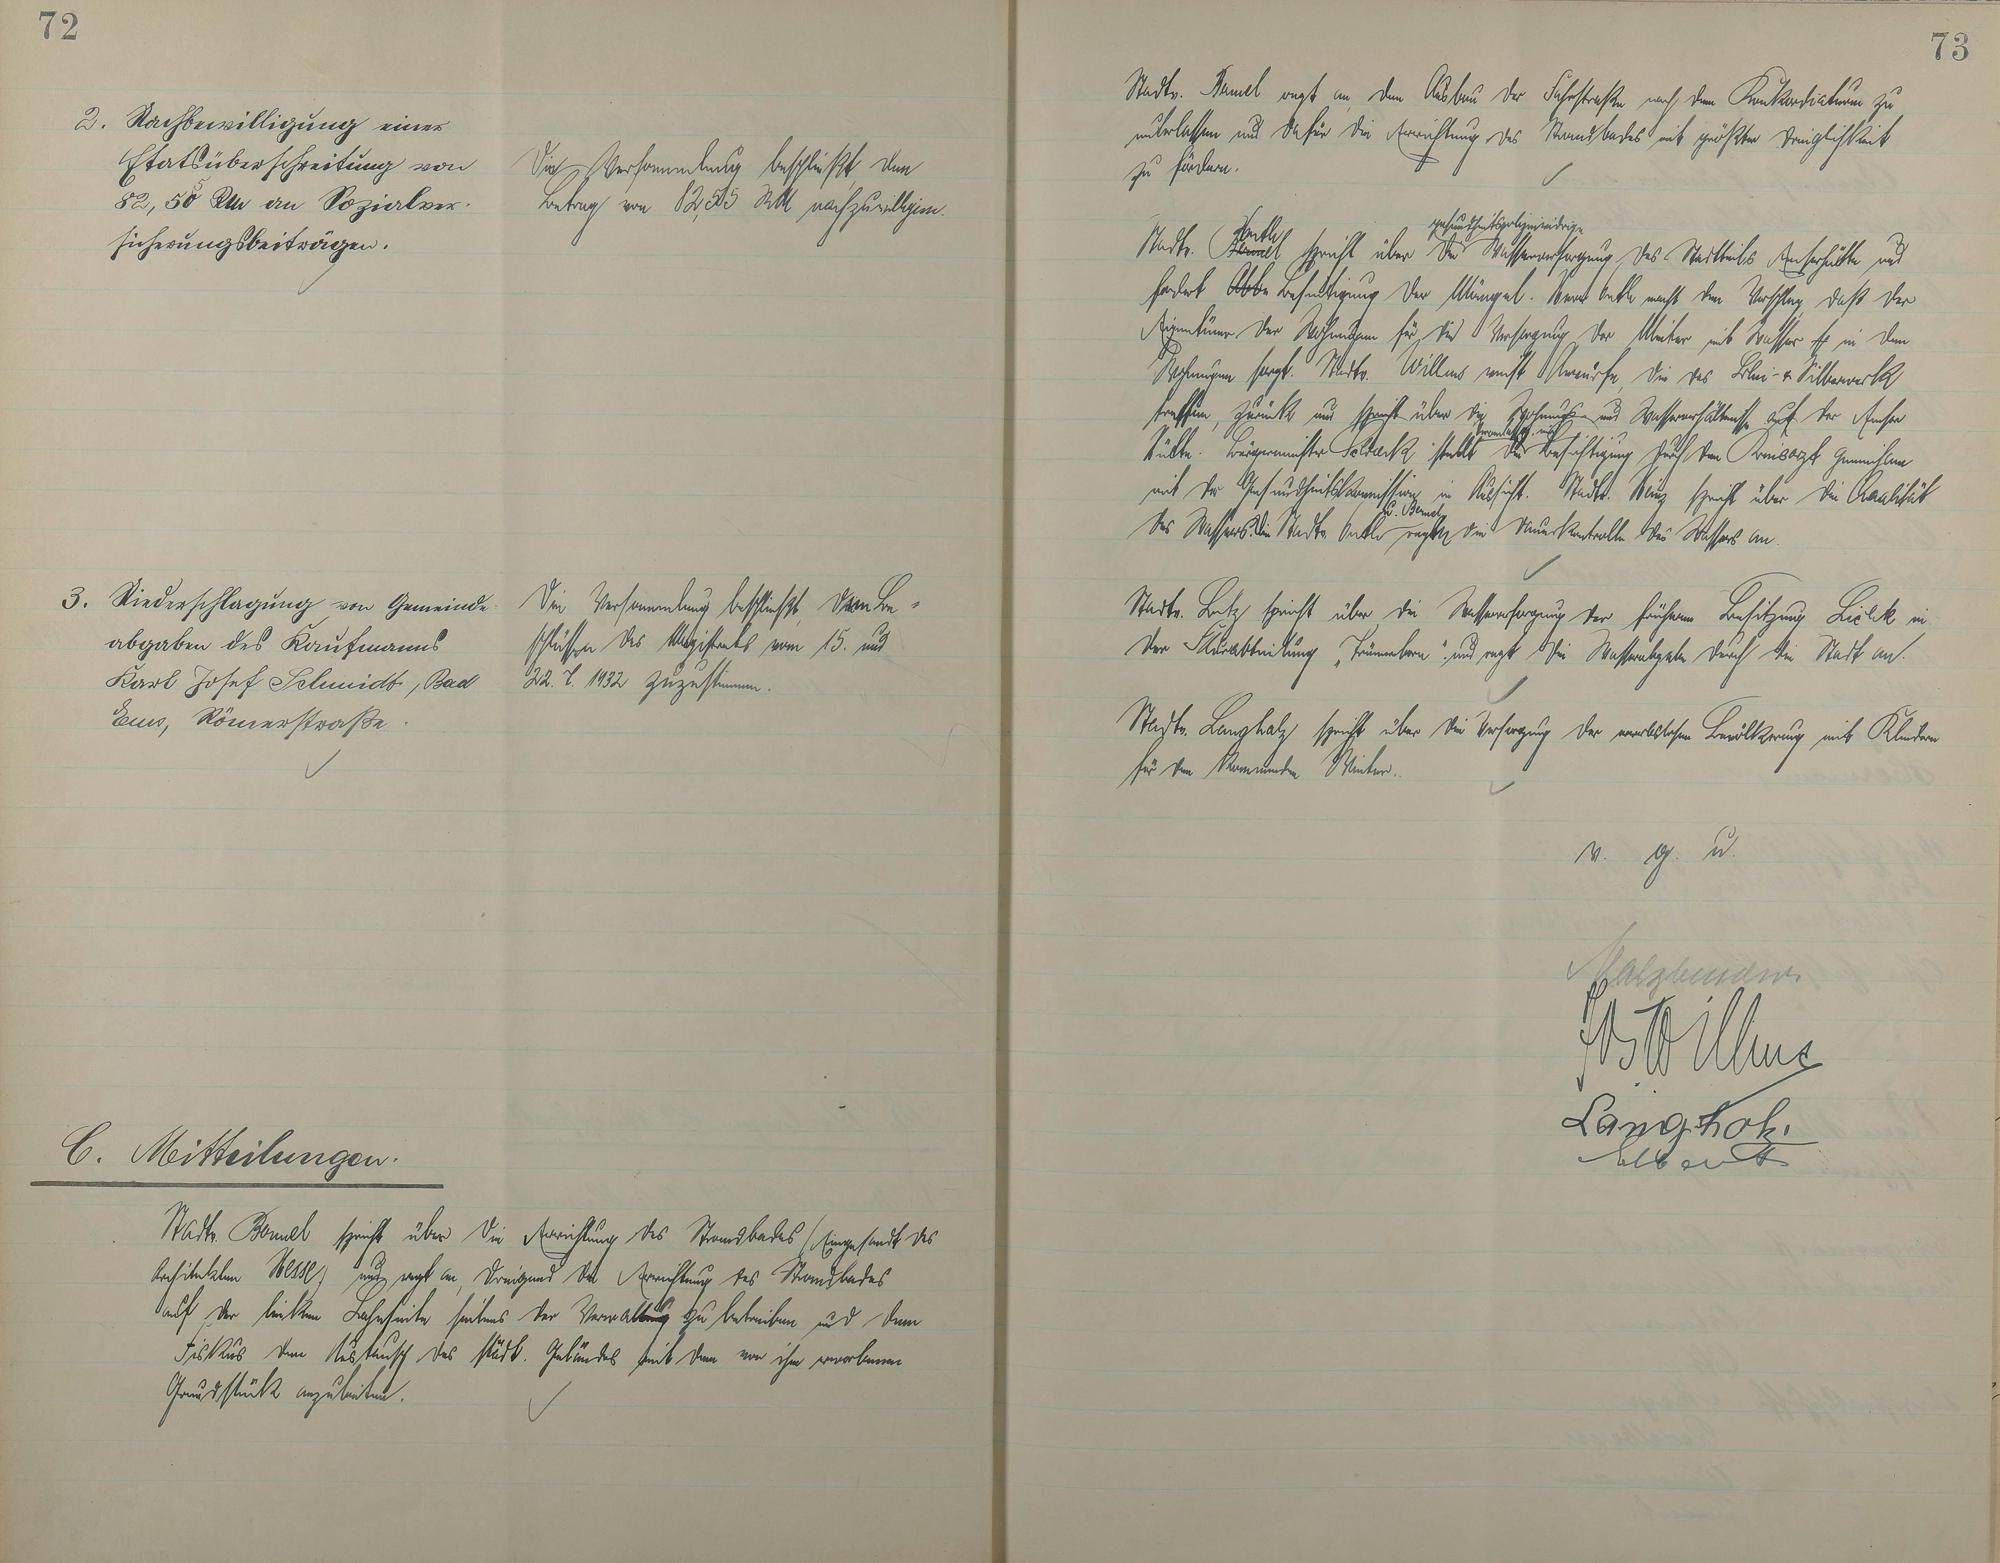 72
2. Nachbewilligung einer
Etatsüberschreitung von
82,55 RM an Sozialver-
sicherungsbeiträgen.
Die Versammlung beschließt, den
Betrag von 82,55 RM nachzuwilligen.
3. Niederschlagung von Gemeinde-
abgaben des Kaufmanns
Karl Josef Schmidt, Bad
Ems, Römerstraße.
Die Versammlung beschließt, den Be-
schlüssen des Magistrats vom 15. und
22. 7. 1932 zuzustimmen.
C. Mitteilungen.
Stadtv. Bomel spricht über die Errichtung des Strandbades (Eingesandt des
Architekten Hesse) und regt an, dringend die Errichtung des Strandbades
auf der linken Lahnseite seitens der Verwaltung zu betreiben und dem
Fiskus den Austausch des städt. Geländes mit dem von ihm erworbenen
Grundstück anzubieten.
73
Stadtv. Bomel regt an, den Ausbau der Fahrstraße nach dem Konkordiaturm zu
unterlassen und dafür die Errichtung des Strandbades mit größter Dringlichkeit
zu fördern.
gesundheitspolizeiwidrige
Stadtv. spricht über die Wasserversorgung des Stadtteils Emserhütte und
fordert Beseitigung der Mängel. Herr macht den Vorschlag, daß der
Eigentümer der Wohnungen für die Versorgung der Mieter mit Wasser in den
Wohnungen sorgt. Stadtv. Willms weist Vorwürfe, die das Blei- & Silberwerk
treffen, zurück und spricht über die Wohnungs- und Wasserverhältnisse auf der Emser
Hütte. Bürgermeister Schaeck stellt die Besichtigung durch den Kreisarzt gemeinsam
mit der Gesundheitskommission in Aussicht. Stadtv. spricht über die Qualität
u. Bomel
des Wassers. Die Stadtv. regen die Dauerkontrolle des Wassers an.
Stadtv. Betz spricht über die Wasserversorgung der früheren Besitzung in
der Flurabteilung "Trümmerborn" und regt die Wasserabgabe durch die Stadt an.
Stadtv. Langholz spricht über die Versorgung der erwerbslosen Bevölkerung mit Kleidern
für den kommenden Winter.
v. g. u.
Malzbender
Jos Willms
Langholz.